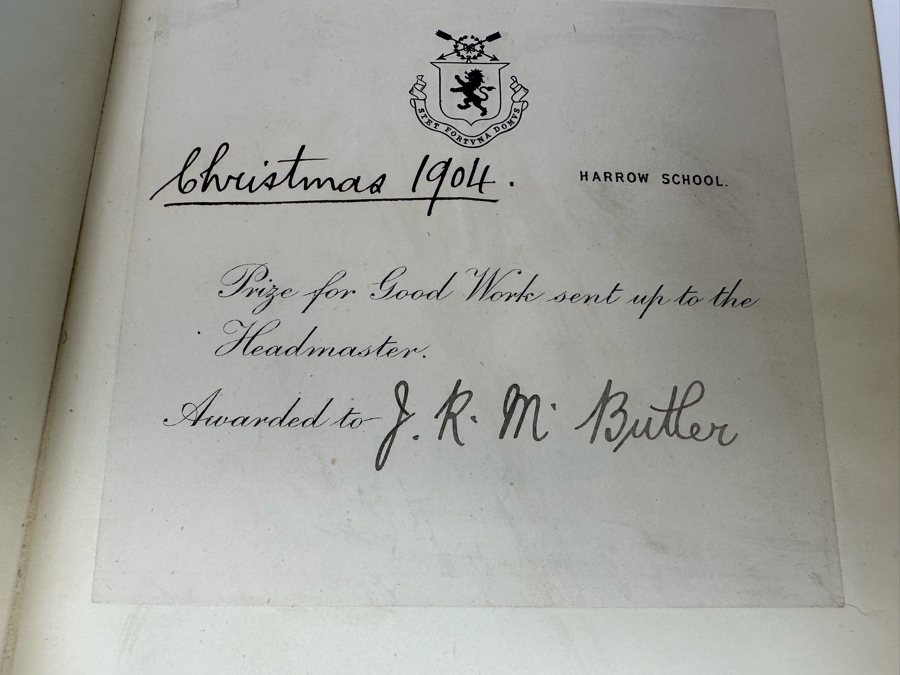 STET FORTVNA DOMVS
Christmas 1904.
HARROW SCHOOL.
Prize for Good Work sent up to the
Headmaster.
Awarded to J. R. M. Butler